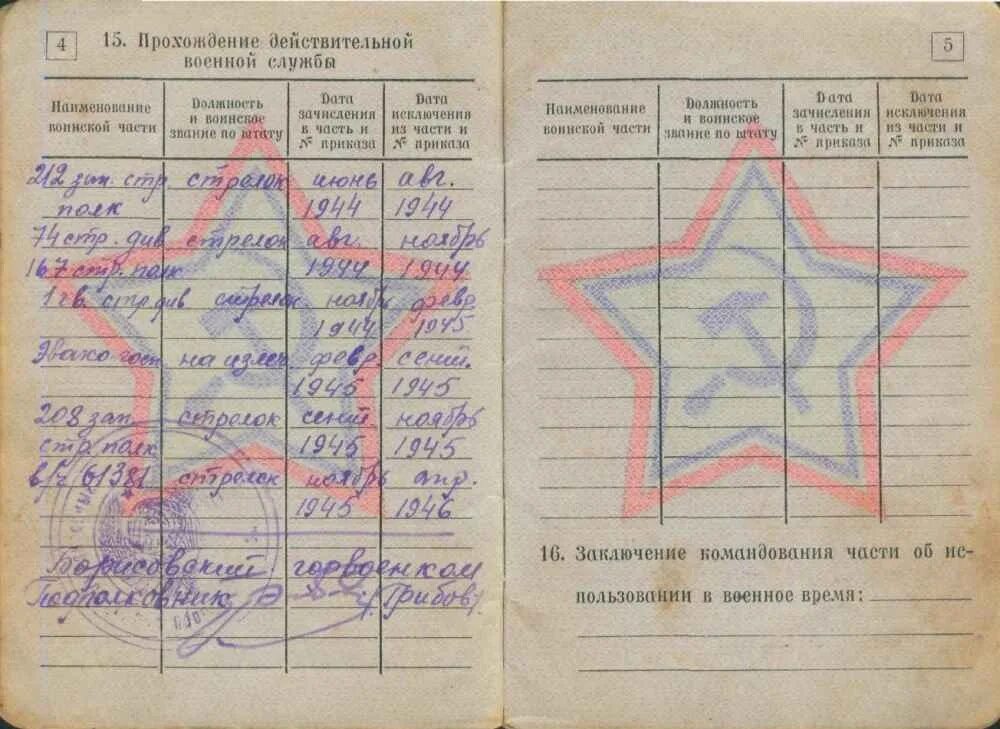 4
15. Прохождение действительной
военной службы
Наименование воинской части
Должность и воинское звание по штату
Дата зачисления в часть и № приказа
Дата исключения из части и № приказа
212 зап. стр. стрелок июнь авг.
полк 1944 1944
74 стр. див стрелок авг. ноябрь
167 стр. полк 1944 1944
1 гв. стр див стрелок ноябрь февр
1944 1945
Эвако госп на излеч февр. сент.
1945 1945
208 зап. стрелок сент. ноябрь
стр. полк 1945 1945
в/ч 61381 стрелок ноябрь апр.
1945 1946
Борисовский горвоенком
Подполковник /Грибов/
5
Наименование воинской части
Должность и воинское звание по штату
Дата зачисления в часть и № приказа
Дата исключения из части и № приказа
16. Заключение командования части об ис-
пользовании в военное время: